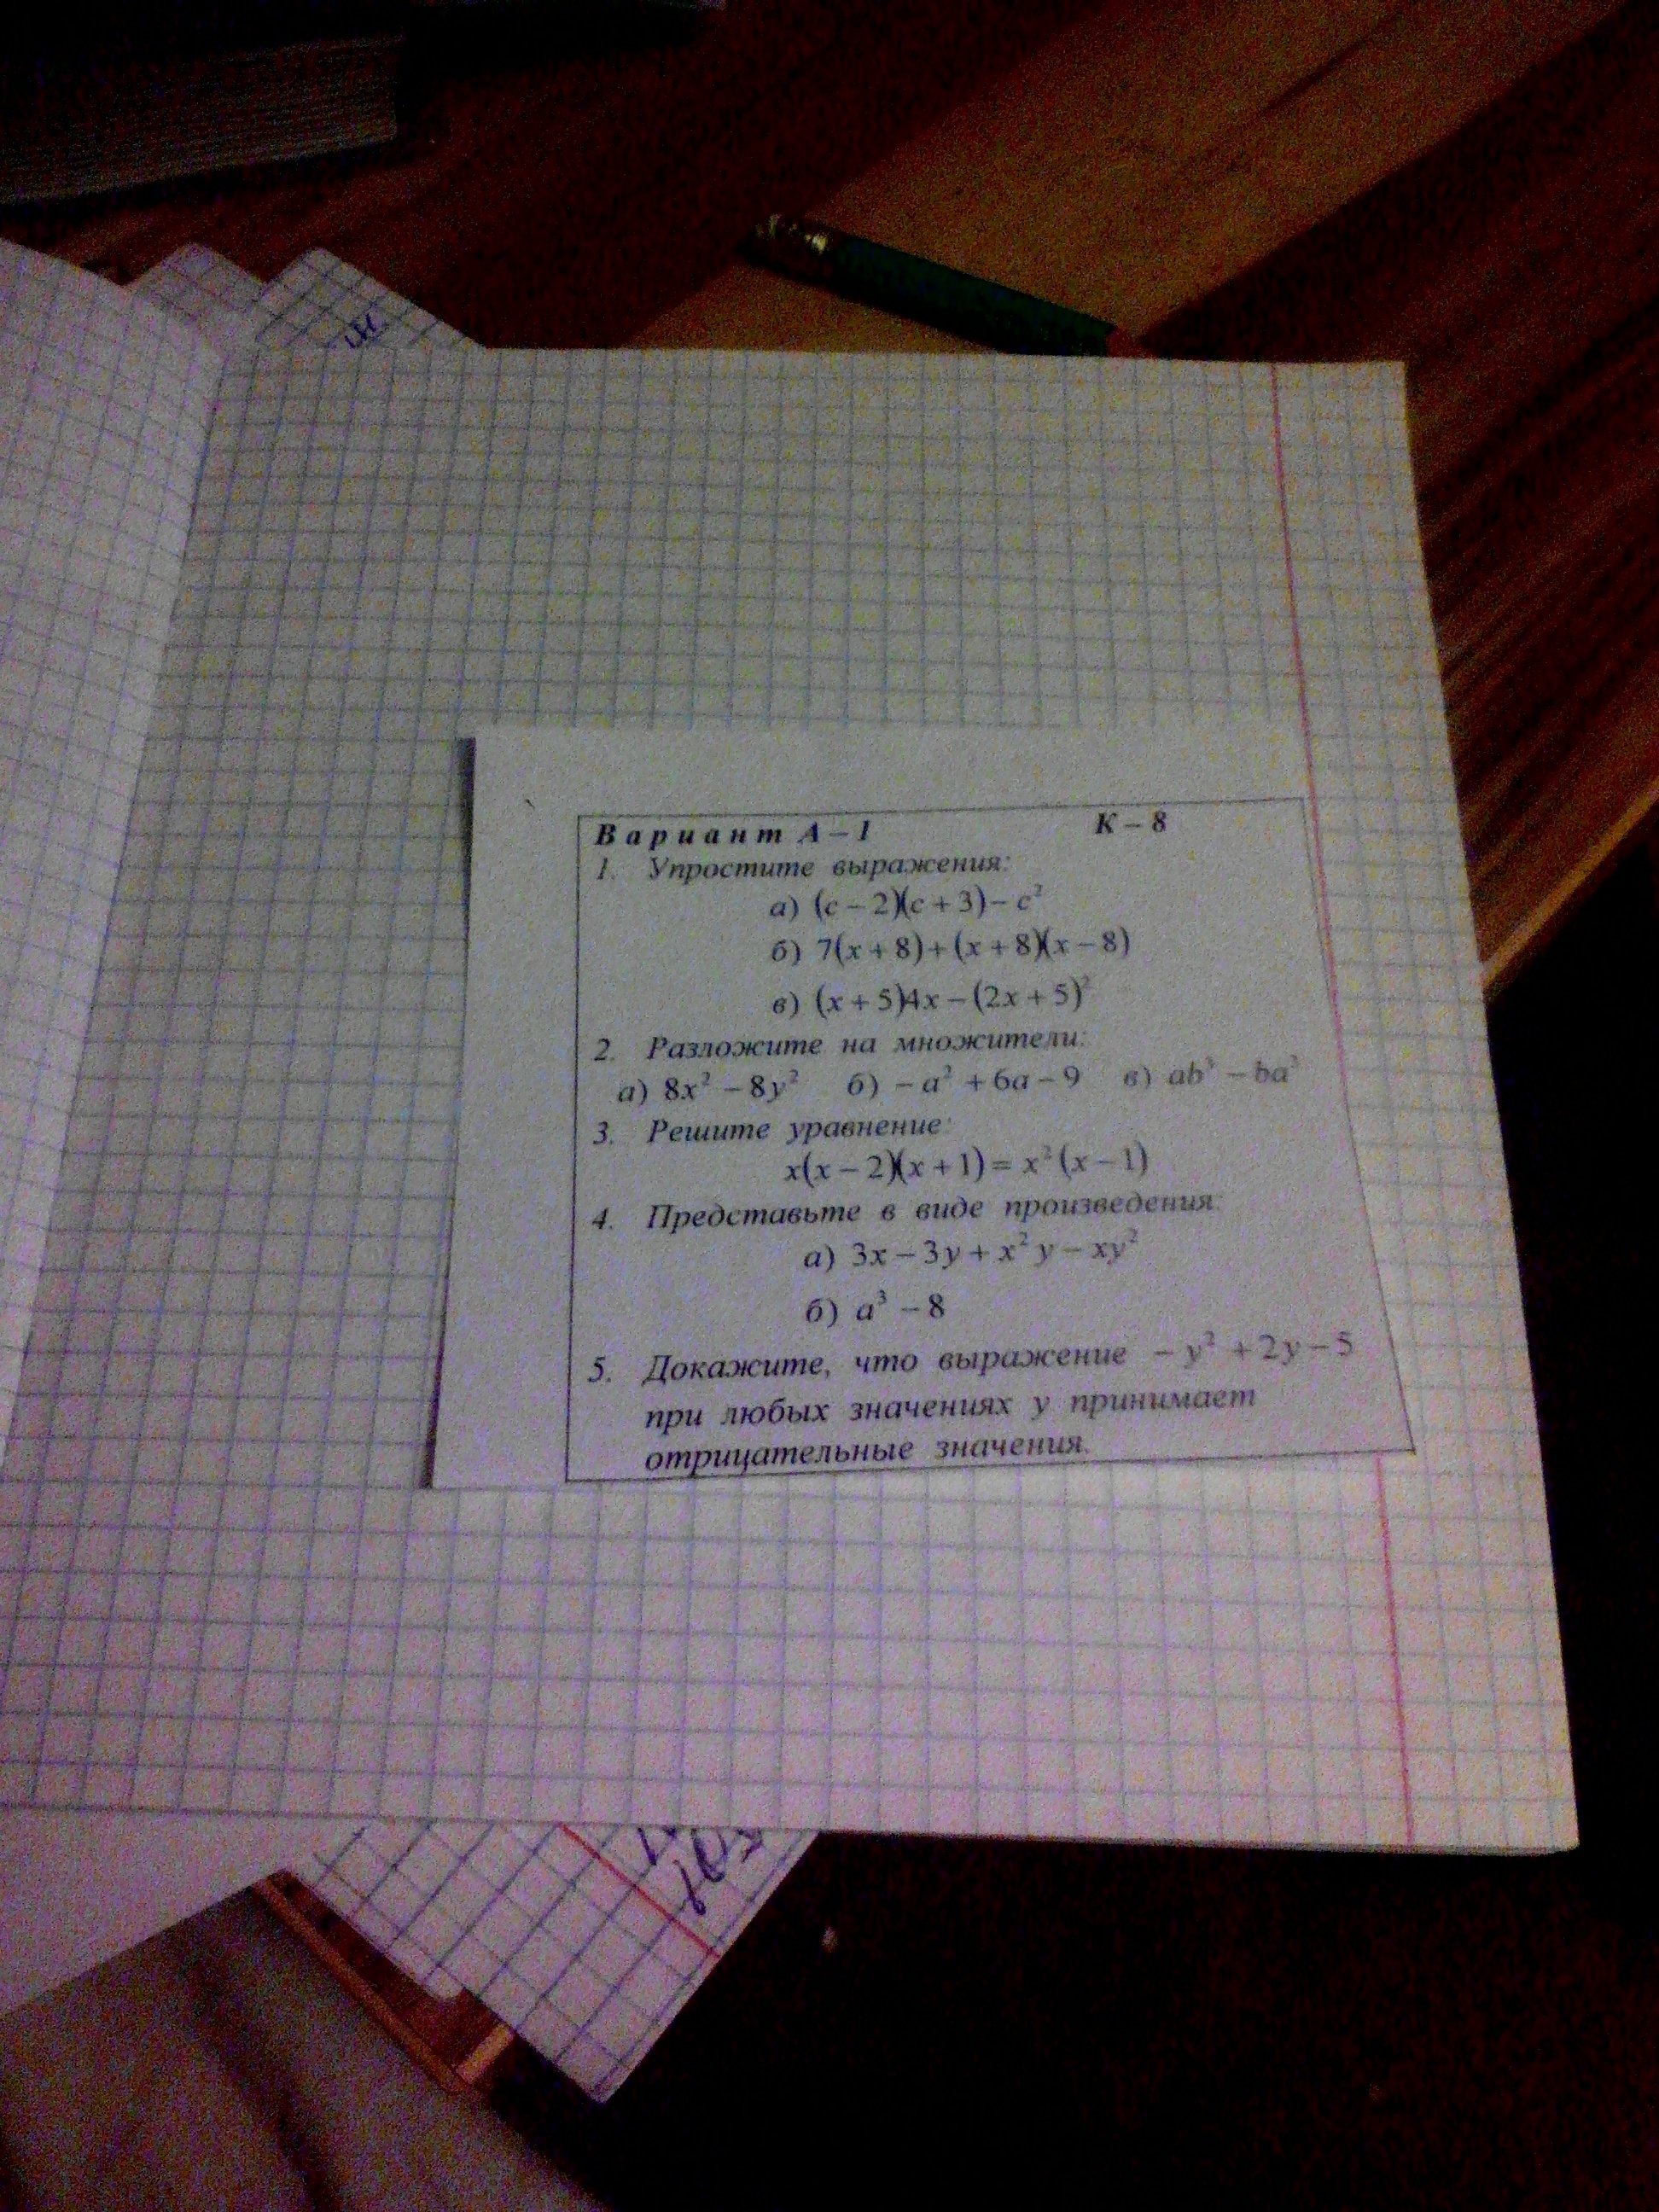 Вариант А – 1 К – 8
1. Упростите выражения:
а) (c − 2)(c + 3) − c²
б) 7(x + 8) + (x + 8)(x − 8)
в) (x + 5)4x − (2x + 5)²
2. Разложите на множители:
а) 8x² − 8y² б) − a² + 6a − 9 в) ab³ − ba³
3. Решите уравнение:
x(x − 2)(x + 1) = x² (x − 1)
4. Представьте в виде произведения:
а) 3x − 3y + x² y − xy²
б) a³ − 8
5. Докажите, что выражение − y² + 2y − 5
при любых значениях y принимает
отрицательные значения.